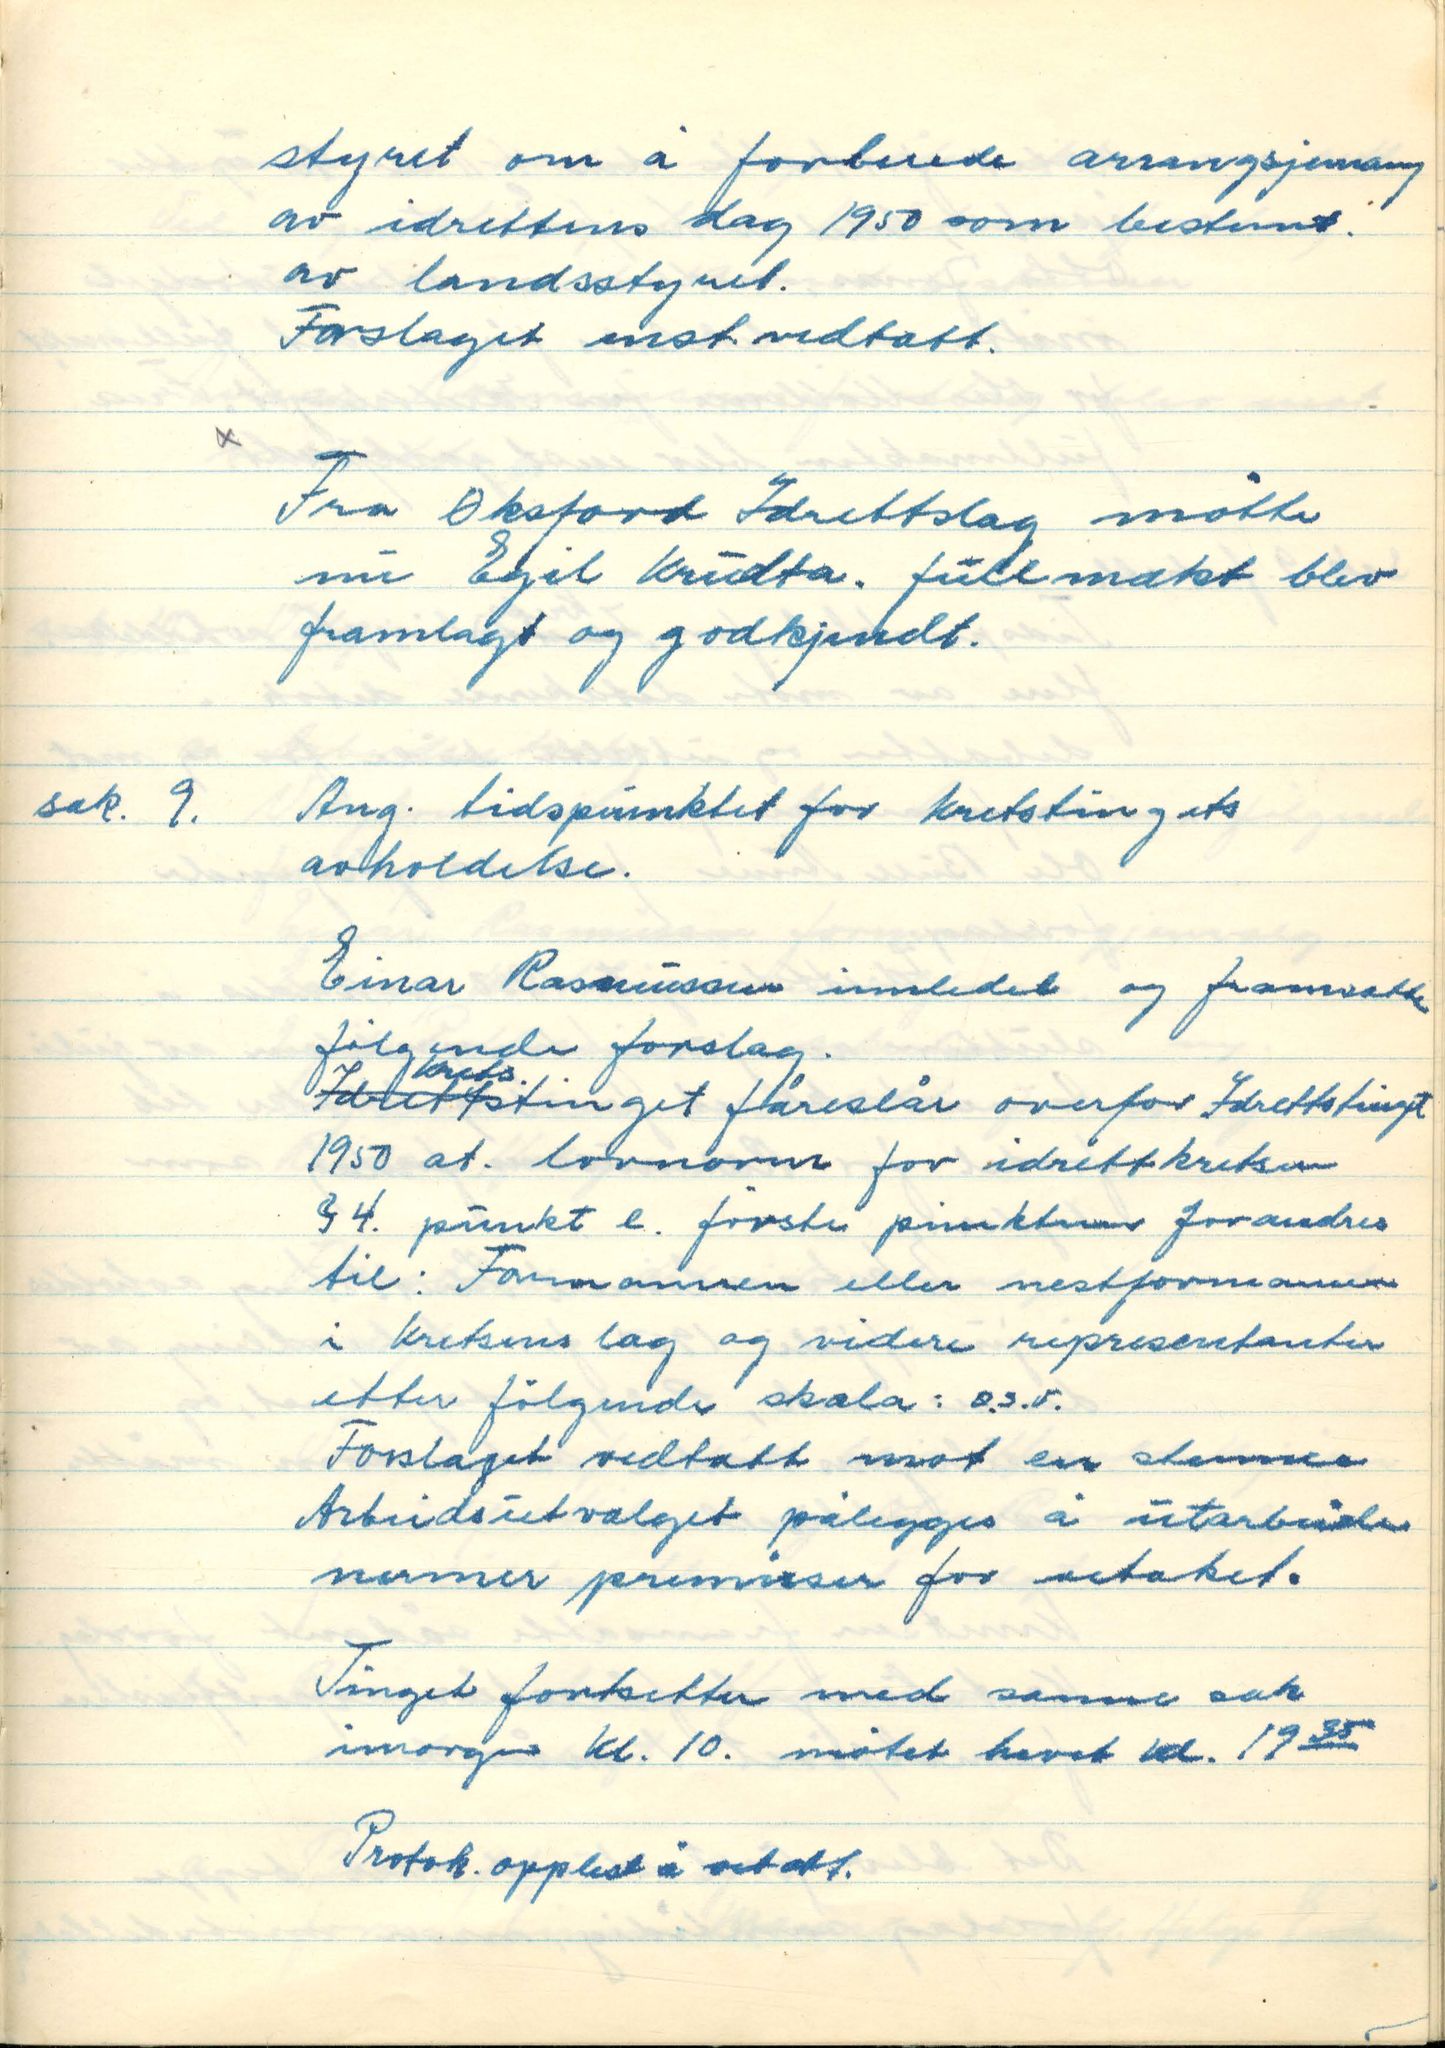 styret om å forberede arrangsjemang
av idrettens dag 1950 som bestemt.
av landsstyret.
Forslaget enst. vedtatt.
x
Fra Øksfjord Idrettslag møtte
nu Egil Krudta. fullmakt blev
framlagt og godkjendt.
sak. 9. Ang. tidspunktet for kretstingets
avholdelse.
Einar Rasmussen innledet og framsatte
følgende forslag.
Krets.
Idrettstinget føreslår overfor Idrettstinget
1950 at. lovnorm for idrettkretsen
§4. punkt e. første punktum forandres
til: Formannen eller nestformannen
i kretsens lag og videre representanter
etter følgende skala: o.s.v.
Forslaget vedtatt mot en stemme
Arbeidsutvalget pålegges å utarbeide
nermer premisser for vetaket.
Tinget fortsetter med samme sak
imorgen kl. 10. møtet hevet kl. 19 35
Protok. opplest å vetatt.